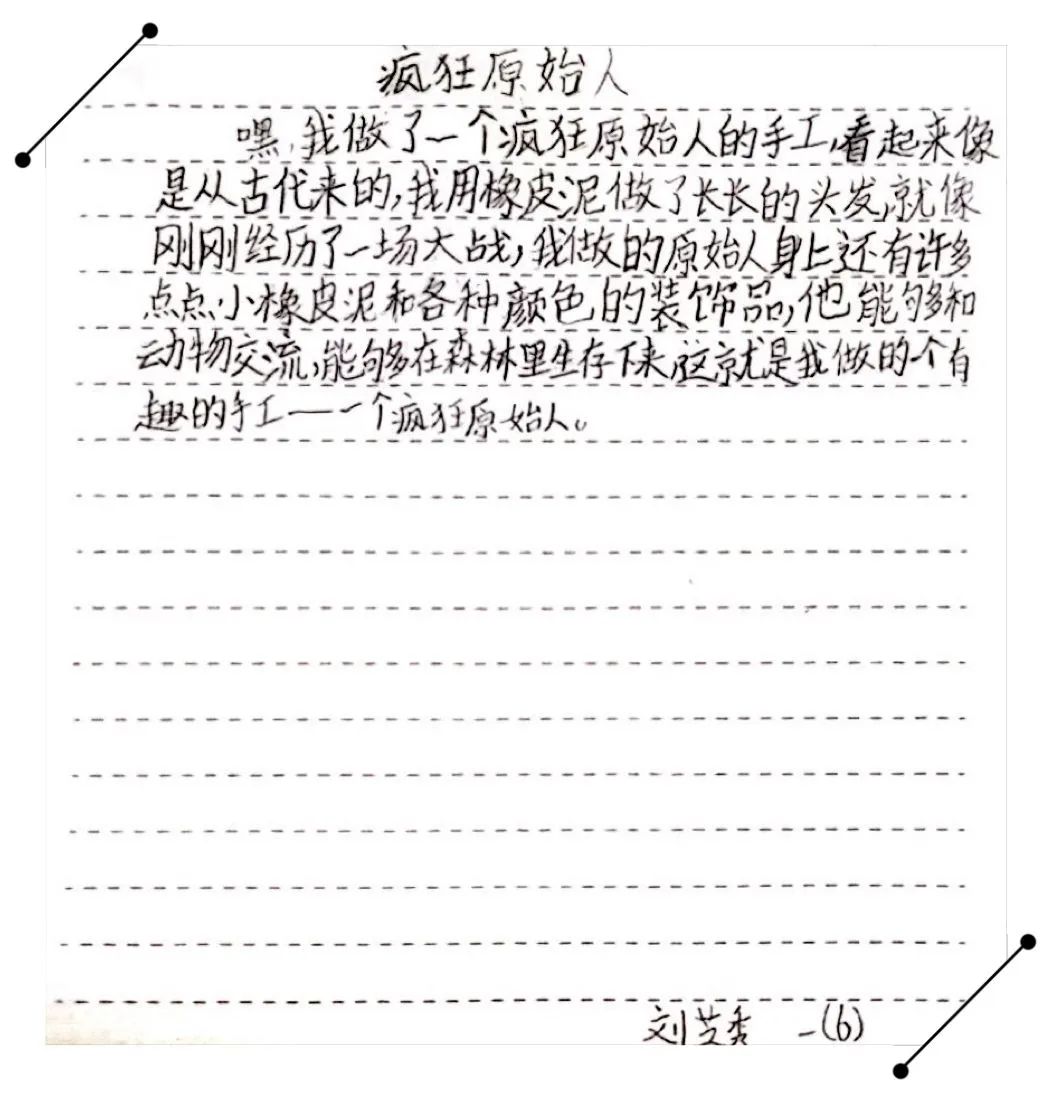 疯狂原始人
嘿,我做了一个疯狂原始人的手工,看起来像
是从古代来的,我用橡皮泥做了长长的头发,就像
刚刚经历了一场大战,我做的原始人身上还有许多
点点小橡皮泥和各种颜色的装饰品,他能够和
动物交流,能够在森林里生存下来,这就是我做的一个有
趣的手工——一个疯狂原始人。
刘芝秀 一(6)